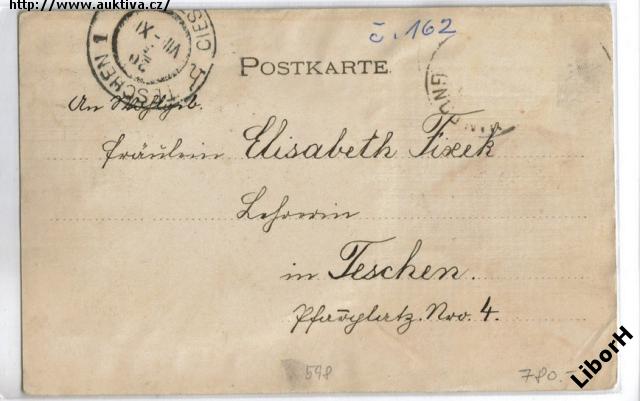 http://www.auktiva.cz/
TESCHEN 1 CIES
VII-XI
č. 162
POSTKARTE
An Wohlgeb.
Fräulein Elisabeth Fixek
Lehrerin
in Teschen.
Pfarrplatz Nro. 4.
598
780.-
LiborH